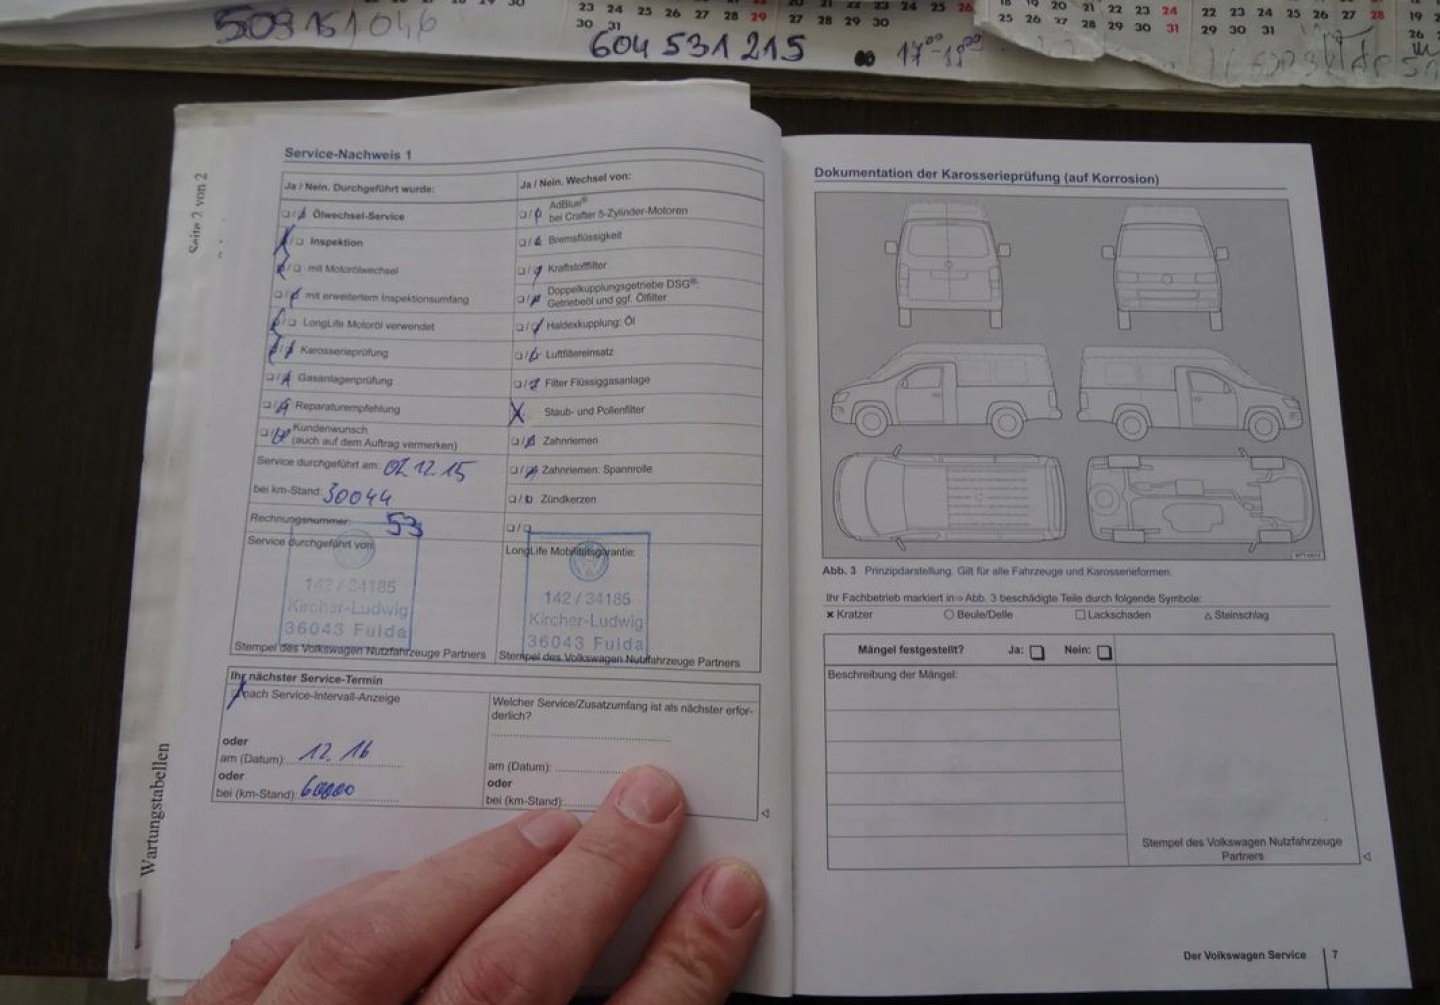 23 24 25 26 27 28 29
27 28 29 30
30 31
509 151 046
604 531 215
17⁰⁰-18⁰⁰
25 26 27 28 29 30 31
22 23 24 25 26 27 28
29 30 31
Seite 2 von 2
Wartungstabellen
Service-Nachweis 1
Ja / Nein. Durchgeführt wurde:
Ölwechsel-Service
Inspektion
mit Motorölwechsel
mit erweitertem Inspektionsumfang
LongLife Motoröl verwendet
Karosserieprüfung
Gasanlagenprüfung
Reparaturempfehlung
Kundenwunsch
(auch auf dem Auftrag vermerken)
Service durchgeführt am: 02.12.15
bei km-Stand: 30044
Rechnungsnummer: 53
Service durchgeführt von:
142 / 34185
Kircher-Ludwig
36043 Fulda
Stempel des Volkswagen Nutzfahrzeuge Partners
Ja / Nein. Wechsel von:
AdBlue®
bei Crafter 5-Zylinder-Motoren
Bremsflüssigkeit
Kraftstofffilter
Doppelkupplungsgetriebe DSG®:
Getriebeöl und ggf. Ölfilter
Haldexkupplung: Öl
Luftfiltereinsatz
Filter Flüssiggasanlage
Staub- und Pollenfilter
Zahnriemen
Zahnriemen: Spannrolle
Zündkerzen
LongLife Mobilitätsgarantie:
142 / 34185
Kircher-Ludwig
36043 Fulda
Stempel des Volkswagen Nutzfahrzeuge Partners
Ihr nächster Service-Termin
nach Service-Intervall-Anzeige
oder
am (Datum): 12.16
oder
bei (km-Stand): 60000
Welcher Service/Zusatzumfang ist als nächster erfor-
derlich?
am (Datum):
oder
bei (km-Stand):
Dokumentation der Karosserieprüfung (auf Korrosion)
Abb. 3 Prinzipdarstellung. Gilt für alle Fahrzeuge und Karosserieformen.
Ihr Fachbetrieb markiert in ⇒ Abb. 3 beschädigte Teile durch folgende Symbole:
× Kratzer ○ Beule/Delle □ Lackschaden △ Steinschlag
Mängel festgestellt? Ja: Nein:
Beschreibung der Mängel:
Stempel des Volkswagen Nutzfahrzeuge
Partners
Der Volkswagen Service 7